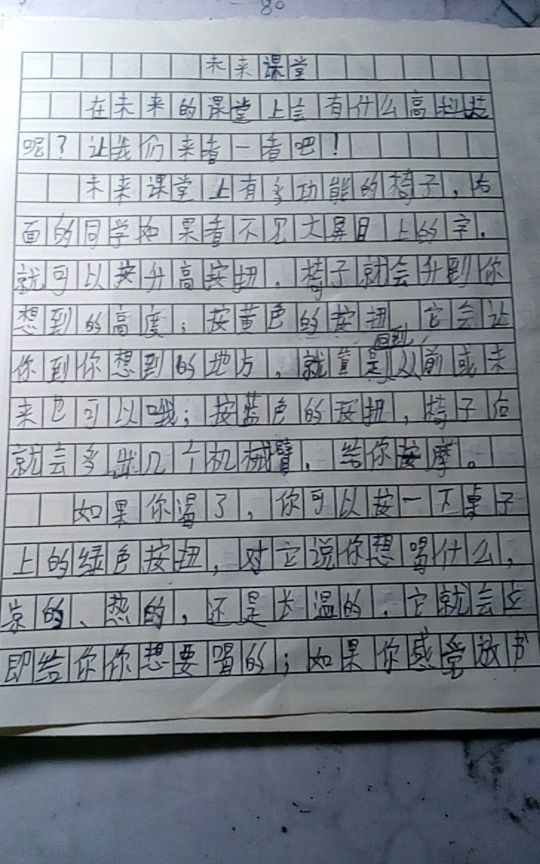 80
未来课堂
在未来的课堂上会有什么高科技
呢？让我们来看一看吧！
未来课堂上有多功能的椅子，后
面的同学如果看不见大屏目上的字，
就可以按升高按扭，椅子就会升到你
想到的高度；按黄色的按扭，它会让
你到你想到的地方，就算是回到以前或未
来也可以哦；按蓝色的按扭，椅子后
就会多出几个机械臂，给你按摩。
如果你渴了，你可以按一下桌子
上的绿色按扭，对它说你想喝什么，
凉的、热的，还是长温的，它就会立
即给你你想要喝的；如果你感觉放书